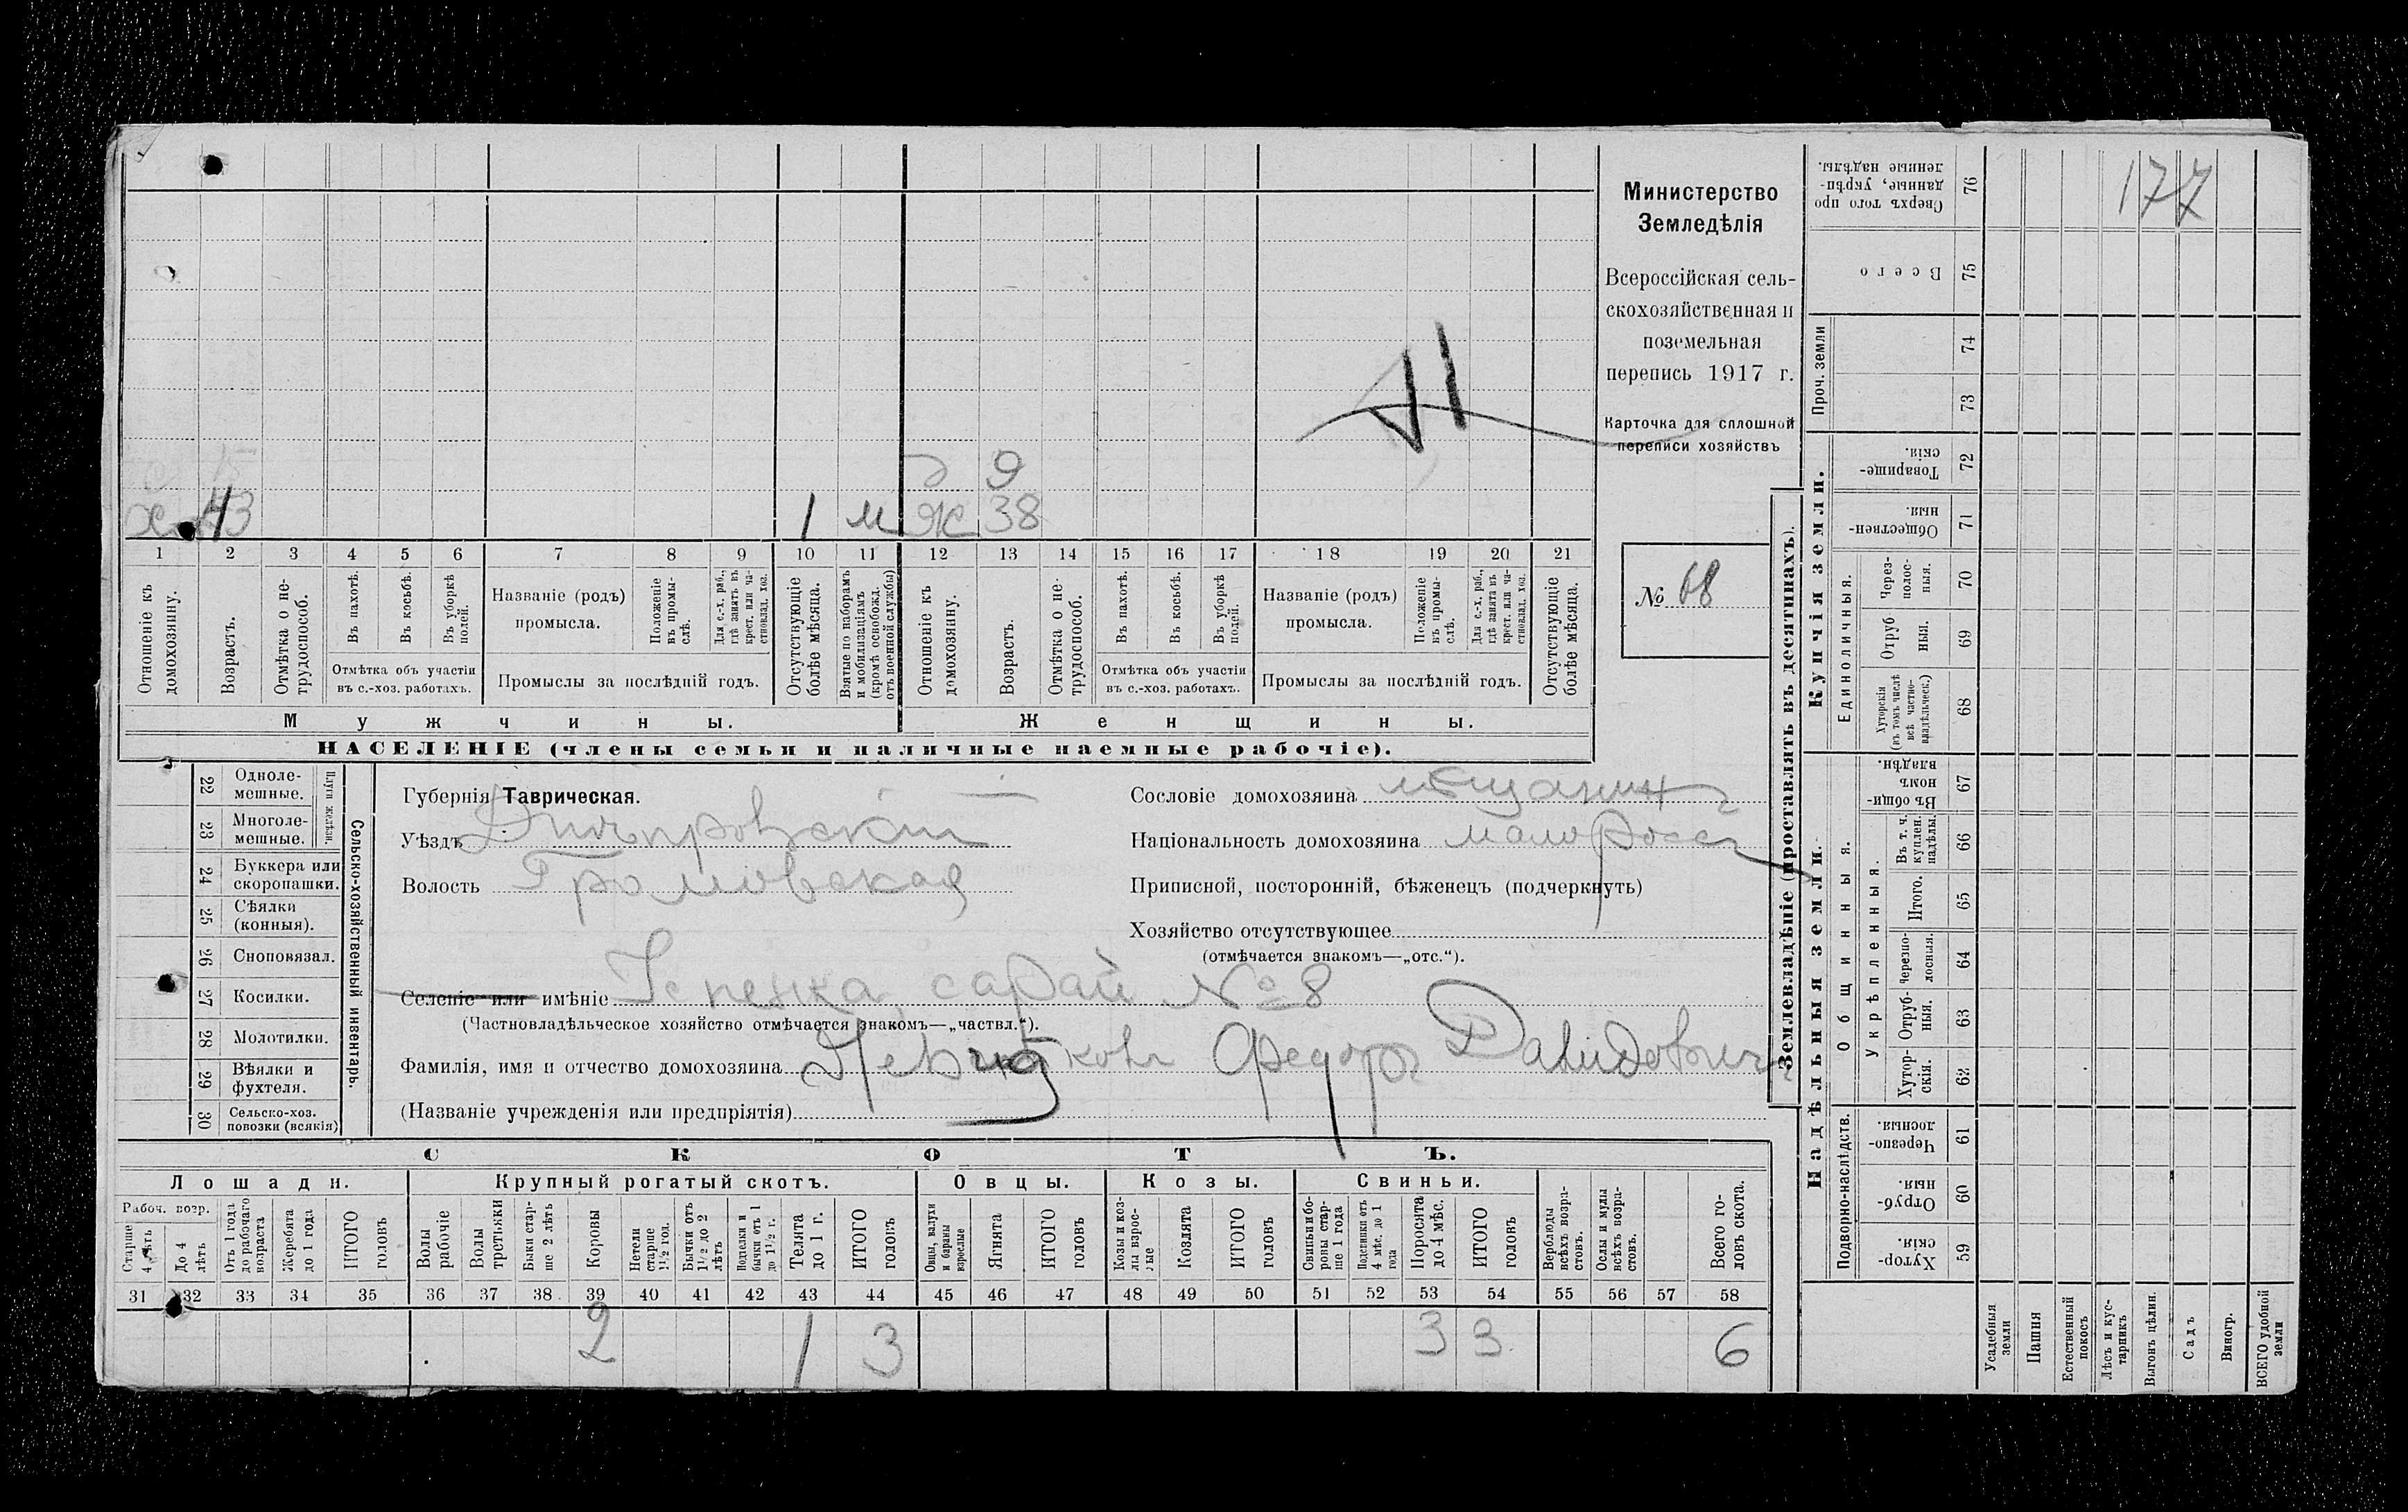 Министерство
Земледѣлія
Всероссійская сель-
скохозяйственная и
поземельная
перепись 1917 г.
Карточка для сплошной
переписи хозяйствъ
№ 68
177
д 9
Хоз 43 1 м Ж 38
1 2 3 4 5 6 7 8 9 10 11 12 13 14 15 16 17 18 19 20 21
Отношеніе къ домохозяину.
Возрастъ.
Отмѣтка о не-трудоспособ.
Въ пахотѣ.
Въ косьбѣ.
Въ уборкѣ полей.
Отмѣтка объ участіи въ с.-хоз. работахъ.
Названіе (родъ) промысла.
Положеніе въ промы-слѣ.
Для с.-х. раб., гдѣ занятъ въ крест. или ча-стновлад. хоз.
Промыслы за послѣдній годъ.
Отсутствующіе болѣе мѣсяца.
Взятые по наборамъ и мобилизаціямъ (кромѣ освобожд. отъ военной службы)
Отношеніе къ домохозяину.
Возрастъ.
Отмѣтка о не-трудоспособ.
Въ пахотѣ.
Въ косьбѣ.
Въ уборкѣ полей.
Отмѣтка объ участіи въ с.-хоз. работахъ.
Названіе (родъ) промысла.
Положеніе въ промы-слѣ.
Для с.-х. раб., гдѣ занята въ крест. или ча-стновлад. хоз.
Промыслы за послѣдній годъ.
Отсутствующіе болѣе мѣсяца.
Мужчины. Женщины.
НАСЕЛЕНІЕ (члены семьи и наличные наемные рабочіе).
22 Одноле-мешные.
23 Многоле-мешные.
Плуги желѣзн.
24 Буккера или скоропашки.
25 Сѣялки (конныя).
26 Сноповязал.
27 Косилки.
28 Молотилки.
29 Вѣялки и фухтеля.
30 Сельско-хоз. повозки (всякія)
Сельско-хозяйственный инвентарь.
Губернія Таврическая.
Уѣздъ Днѣпровскій
Волость Громовская
Сословіе домохозяина мѣщанин
Національность домохозяина малоросс
Приписной, посторонній, бѣженецъ (подчеркнуть)
Хозяйство отсутствующее
(отмѣчается знакомъ—„отс.“).
Селеніе или имѣніе Успенка сарай № 8
(Частновладѣльческое хозяйство отмѣчается знакомъ—„частвл.“).
Фамилія, имя и отчество домохозяина Федоръ Давидовичъ
(Названіе учрежденія или предпріятія)
СКОТЪ.
Лошади. Крупный рогатый скотъ. Овцы. Козы. Свиньи.
Рабоч. возр.
Старше 4 лѣтъ
До 4 лѣтъ
Отъ 1 года до рабочаго возраста
Жеребята до 1 года
ИТОГО головъ
Волы рабочіе
Волы третьяки
Быки стар-ше 2 лѣтъ
Коровы
Нетели старше 1½ год.
Бычки отъ 1½ до 2 лѣтъ
Подтелки и бычки отъ 1 до 1½ г.
Телята до 1 г.
ИТОГО головъ
Овцы, валухи и бараны взрослые
Ягнята
ИТОГО головъ
Козы и коз-лы взрос-лые
Козлята
ИТОГО головъ
Свиньи и бо-ровы стар-ше 1 года
Подсвинки отъ 4 мѣс. до 1 года
Поросята до 4 мѣс.
ИТОГО головъ
Верблюды всѣхъ возра-стовъ.
Ослы и мулы всѣхъ возра-стовъ.
Всего го-ловъ скота.
31 32 33 34 35 36 37 38 39 40 41 42 43 44 45 46 47 48 49 50 51 52 53 54 55 56 57 58
2 1 3 3 3 6
Землевладѣніе (проставлять въ десятинахъ).
Надѣльныя земли. Купчія земли.
Проч. земли
Сверхъ того про данные, укрѣп-ленные надѣлы. 76
Всего 75
74
73
Товарище-скія. 72
Обществен-ныя. 71
Единоличныя.
Через-полос-ныя. 70
Отруб ныя. 69
Хуторскія (въ томъ числѣ всѣ частно-владѣльческ.) 68
Общинныя.
Въ общи-номъ владѣн. 67
Укрѣпленныя.
Въ т. ч. куплен. надѣлы. 66
Итого. 65
Черезпо-лосныя. 64
Отруб-ныя. 63
Хутор-скія. 62
Подворно-наслѣдств.
Черезпо-лосныя. 61
Отруб-ныя. 60
Хутор-скія. 59
Усадебныя земли
Пашня
Естественный покосъ
Лѣсъ и кус-тарникъ
Выгонъ цѣлин.
Садъ
Виногр.
ВСЕГО удобной земли